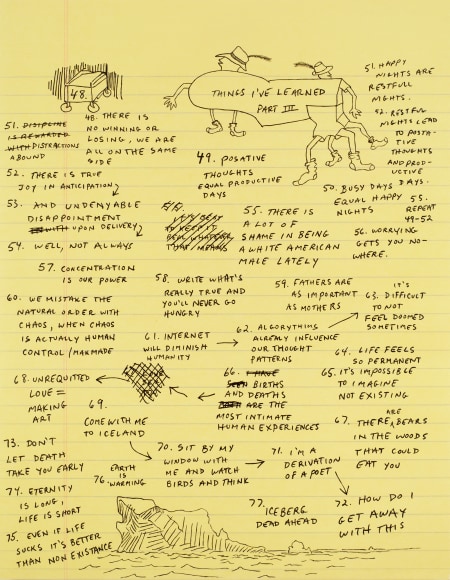 48.
THINGS I'VE LEARNED
PART III
48. THERE IS
NO WINNING OR
LOSING, WE ARE
ALL ON THE SAME
SIDE
49. POSATIVE
THOUGHTS
EQUAL PRODUCTIVE
DAYS
50. BUSY DAYS
EQUAL HAPPY
NIGHTS
51. HAPPY
NIGHTS ARE
RESTFULL
NIGHTS.
52. RESTFUL
NIGHTS LEAD
TO POSTA-
TIVE
THOUGHTS
AND PROD-
UCTIVE
DAYS.
55.
REPEAT
49-52
51.
IS REWARDED
WITH DISTRACTIONS
ABOUND
52. THERE IS TRUE
JOY IN ANTICIPATION
53. AND UNDENYABLE
DISAPPOINTMENT
UPON DELIVERY
54. WELL, NOT ALWAYS
IT'S BEST
TO KEEP IT
REAL WHATEVER
THAT MEANS
55. THERE IS
A LOT OF
SHAME IN BEING
A WHITE AMERICAN
MALE LATELY
56. WORRYING
GETS YOU NO-
WHERE.
57. CONCENTRATION
IS OUR POWER
58. WRITE WHAT'S
REALLY TRUE AND
YOU'LL NEVER GO
HUNGRY
59. FATHERS ARE
AS IMPORTANT
AS MOTHERS
60. WE MISTAKE THE
NATURAL ORDER WITH
CHAOS, WHEN CHAOS
IS ACTUALLY HUMAN
CONTROL/MAKMADE
61. INTERNET
WILL DIMINISH
HUMANITY
62. ALGORYTHIMS
ALREADY INFLUENCE
OUR THOUGHT
PATTERNS
63. IT'S DIFFICULT
TO NOT
FEEL DOOMED
SOMETIMES
64. LIFE FEELS
SO PERMANENT
65. IT'S IMPOSSIBLE
TO IMAGINE
NOT EXISTING
66. I HAVE
SEEN BIRTHS
AND DEATHS
ARE THE
MOST INTIMATE
HUMAN EXPERIENCES
67. THERE ARE BEARS
IN THE WOODS
THAT COULD
EAT YOU
68. UNREQUITTED
LOVE =
MAKING
ART
69.
COME WITH ME
TO ICELAND
70. SIT BY MY
WINDOW WITH
ME AND WATCH
BIRDS AND THINK
71. I'M A
DERIVATION
OF A POET
72. HOW DO I
GET AWAY
WITH THIS
73. DON'T
LET DEATH
TAKE YOU EARLY
74. ETERNITY
IS LONG,
LIFE IS SHORT
75. EVEN IF LIFE
SUCKS IT'S BETTER
THAN NON EXISTANCE
76. EARTH
IS
WARMING
77. ICEBERG
DEAD AHEAD